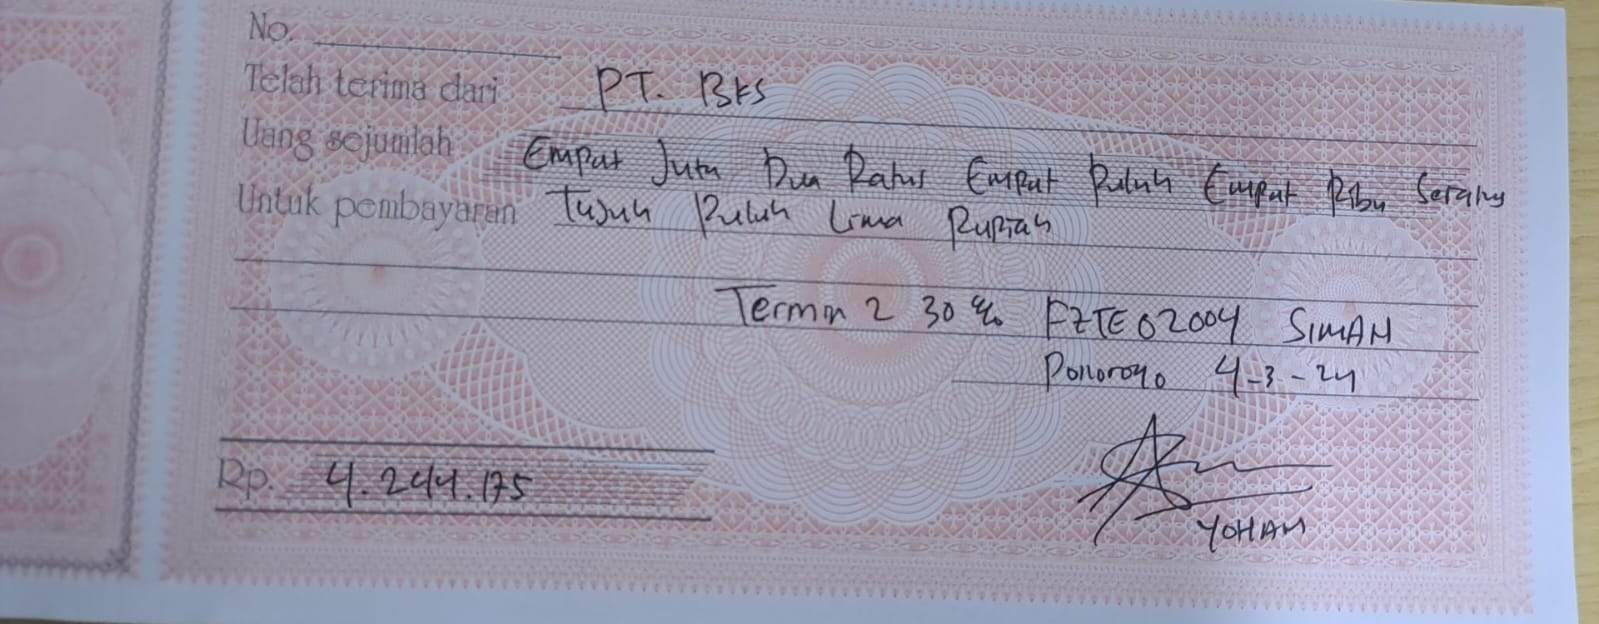 No.
Telah terima dari PT. BKS
Uang sejumlah Empat Juta Dua Ratus Empat Puluh Empat Ribu Seratus
Untuk pembayaran Tujuh Puluh Lima Rupiah
Termin 2 30 % FZTE02004 SIMAN
Ponorogo 4-3-24
Rp. 4.244.175
YOHAN